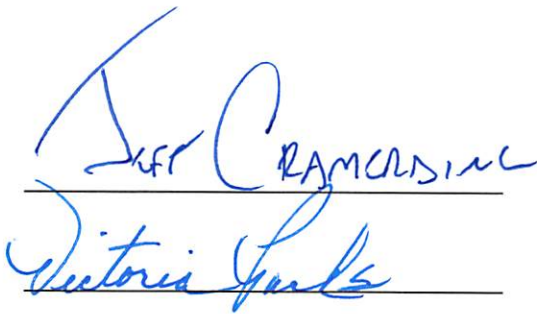 Jeff Cramerding
Victoria Parks